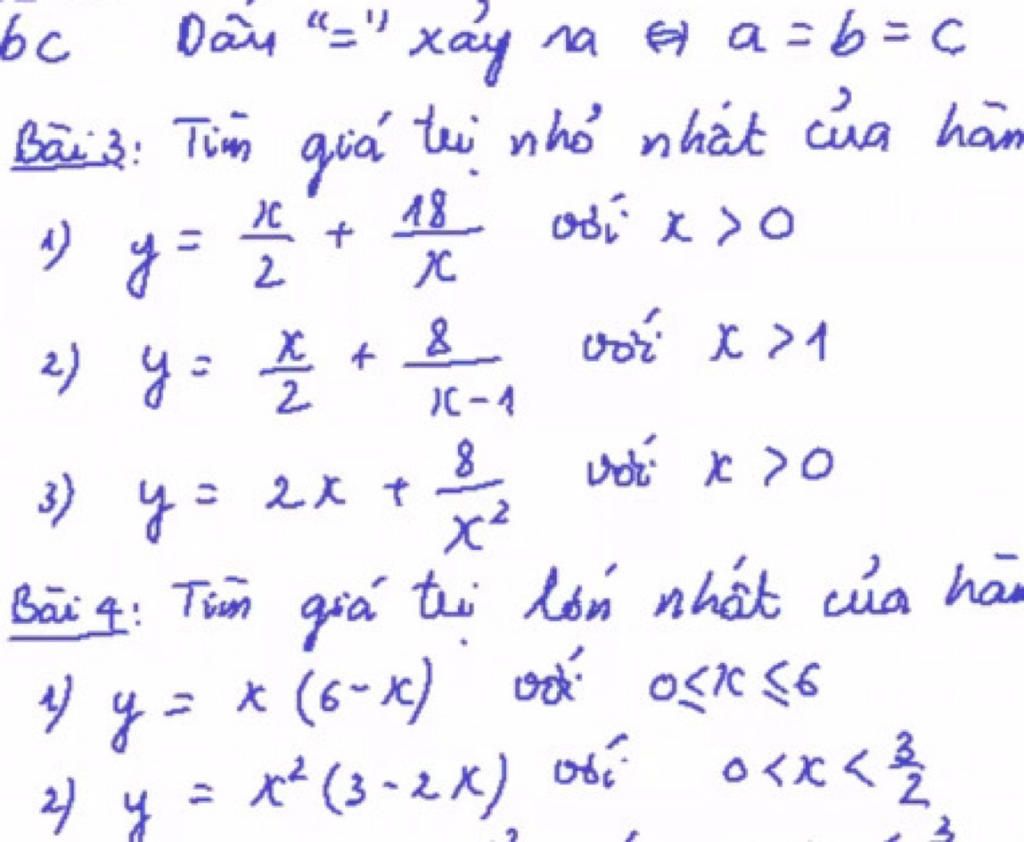 bc Dấu "=" xảy ra ⇔ a = b = c
Bài 3: Tìm giá trị nhỏ nhất của hàm
1) y = x/2 + 18/x với x > 0
2) y = x/2 + 8/(x-1) với x > 1
3) y = 2x + 8/x² với x > 0
Bài 4: Tìm giá trị lớn nhất của hàm
1) y = x(6-x) với 0 ≤ x ≤ 6
2) y = x²(3-2x) với 0 < x < 3/2